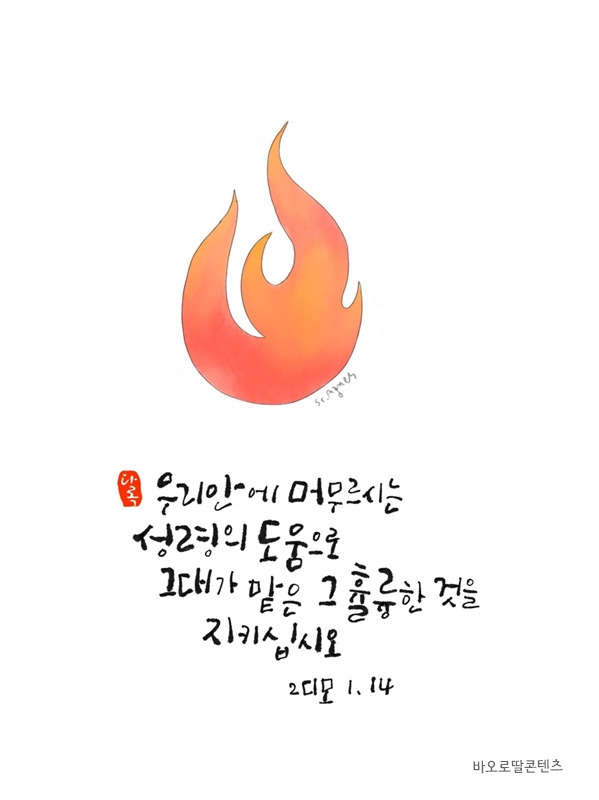 Sr. Agnes
다록
우리안에 머무르시는
성령의 도움으로
그대가 맡은 그 훌륭한 것을
지키십시오
2디모 1.14
바오로딸콘텐츠